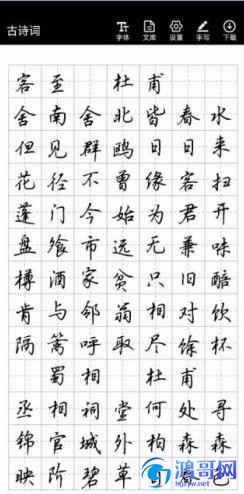 古诗词
字体 文库 设置 手写 下载
客至 杜甫
舍南舍北皆春水
但见群鸥日日来
花径不曾缘客扫
蓬门今始为君开
盘飧市远无兼味
樽酒家贫只旧醅
肯与邻翁相对饮
隔篱呼取尽馀杯
蜀相 杜甫
丞相祠堂何处寻
锦官城外柏森森
映阶碧草
鸿哥网